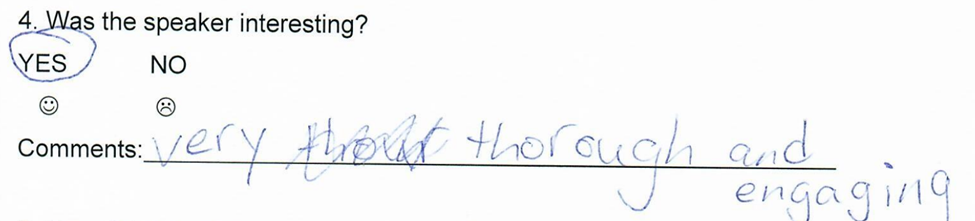 4. Was the speaker interesting?
YES NO
Comments: very thorough and
engaging